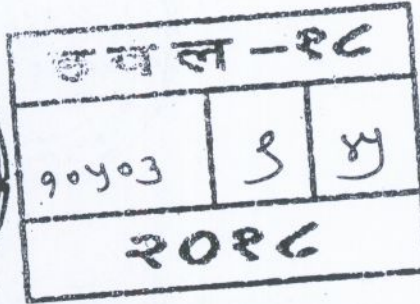 ह व ल - १८
१०५०३ ९ ४५
२०१८